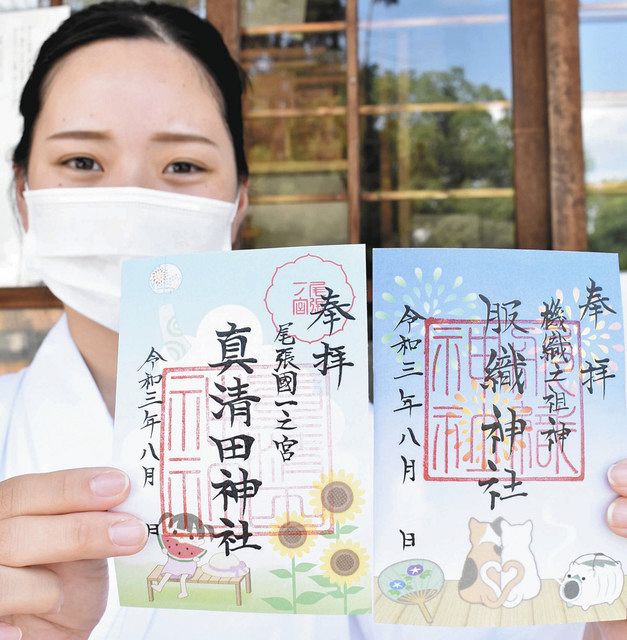 奉拝
尾張國一之宮
真清田神社
令和三年八月 日
奉拝
機織之祖神
服織神社
令和三年八月 日